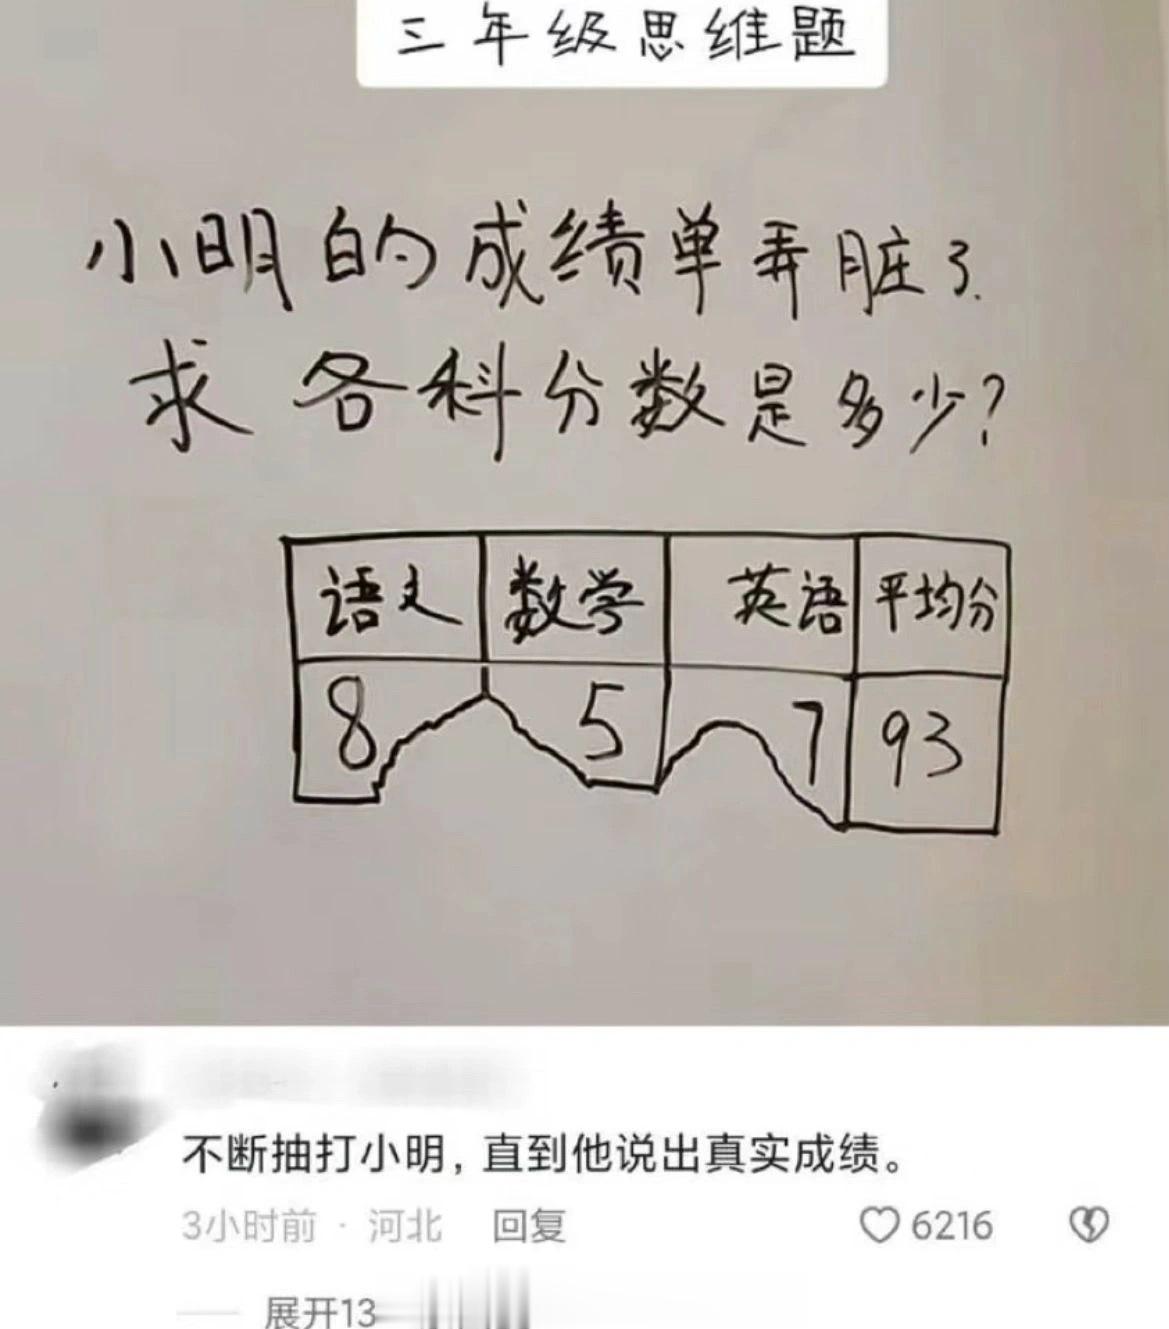 三年级思维题
小明的成绩单弄脏了.
求各科分数是多少?
语文 数学 英语 平均分
8 5 7 93
不断抽打小明，直到他说出真实成绩。
3小时前 · 河北 回复 6216
展开13